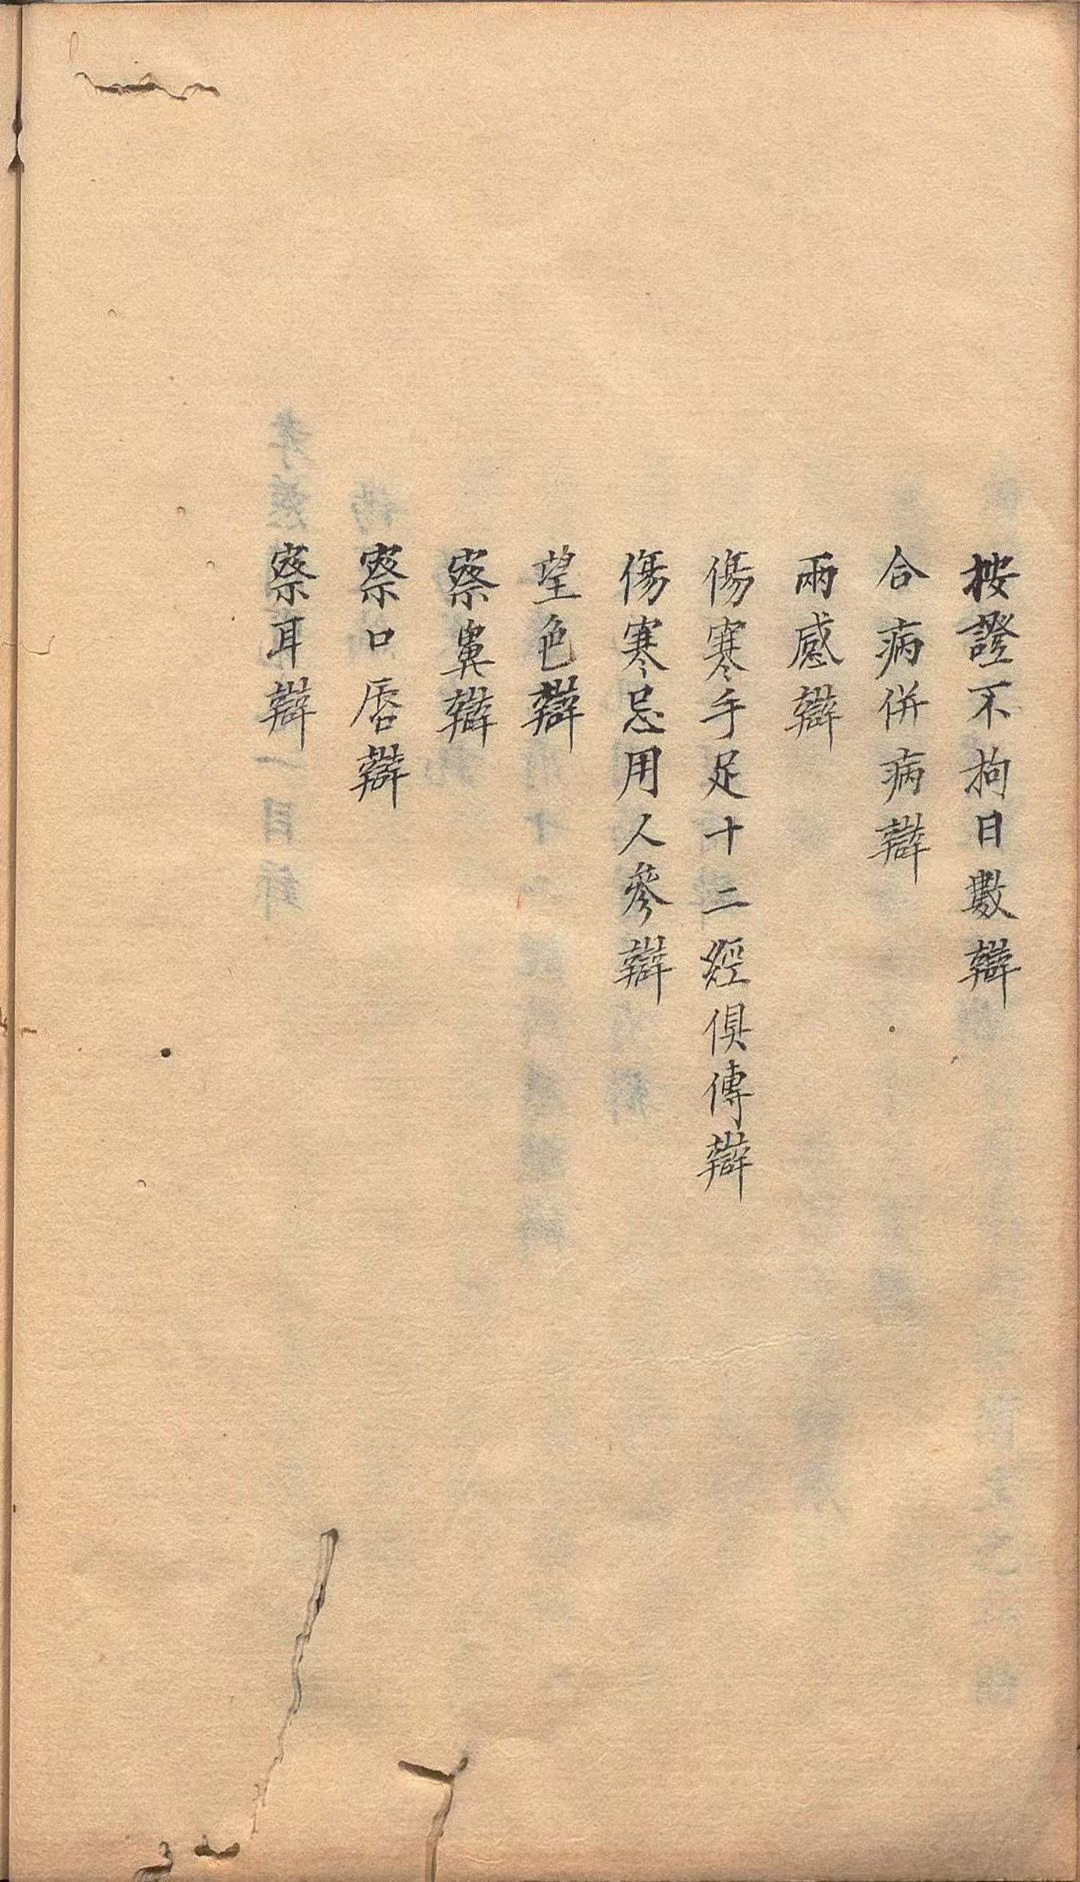 按證不拘日數辯
合病併病辯
兩感辯
傷寒手足十二經俱傳辯
傷寒忌用人參辯
望色辯
察鼻辯
察口唇辯
察耳辯